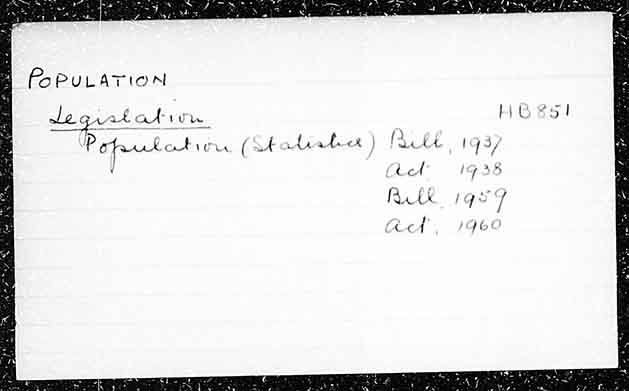 POPULATION
Legislation HB851
Population (Statistics) Bill, 1937
Act 1938
Bill, 1959
Act, 1960